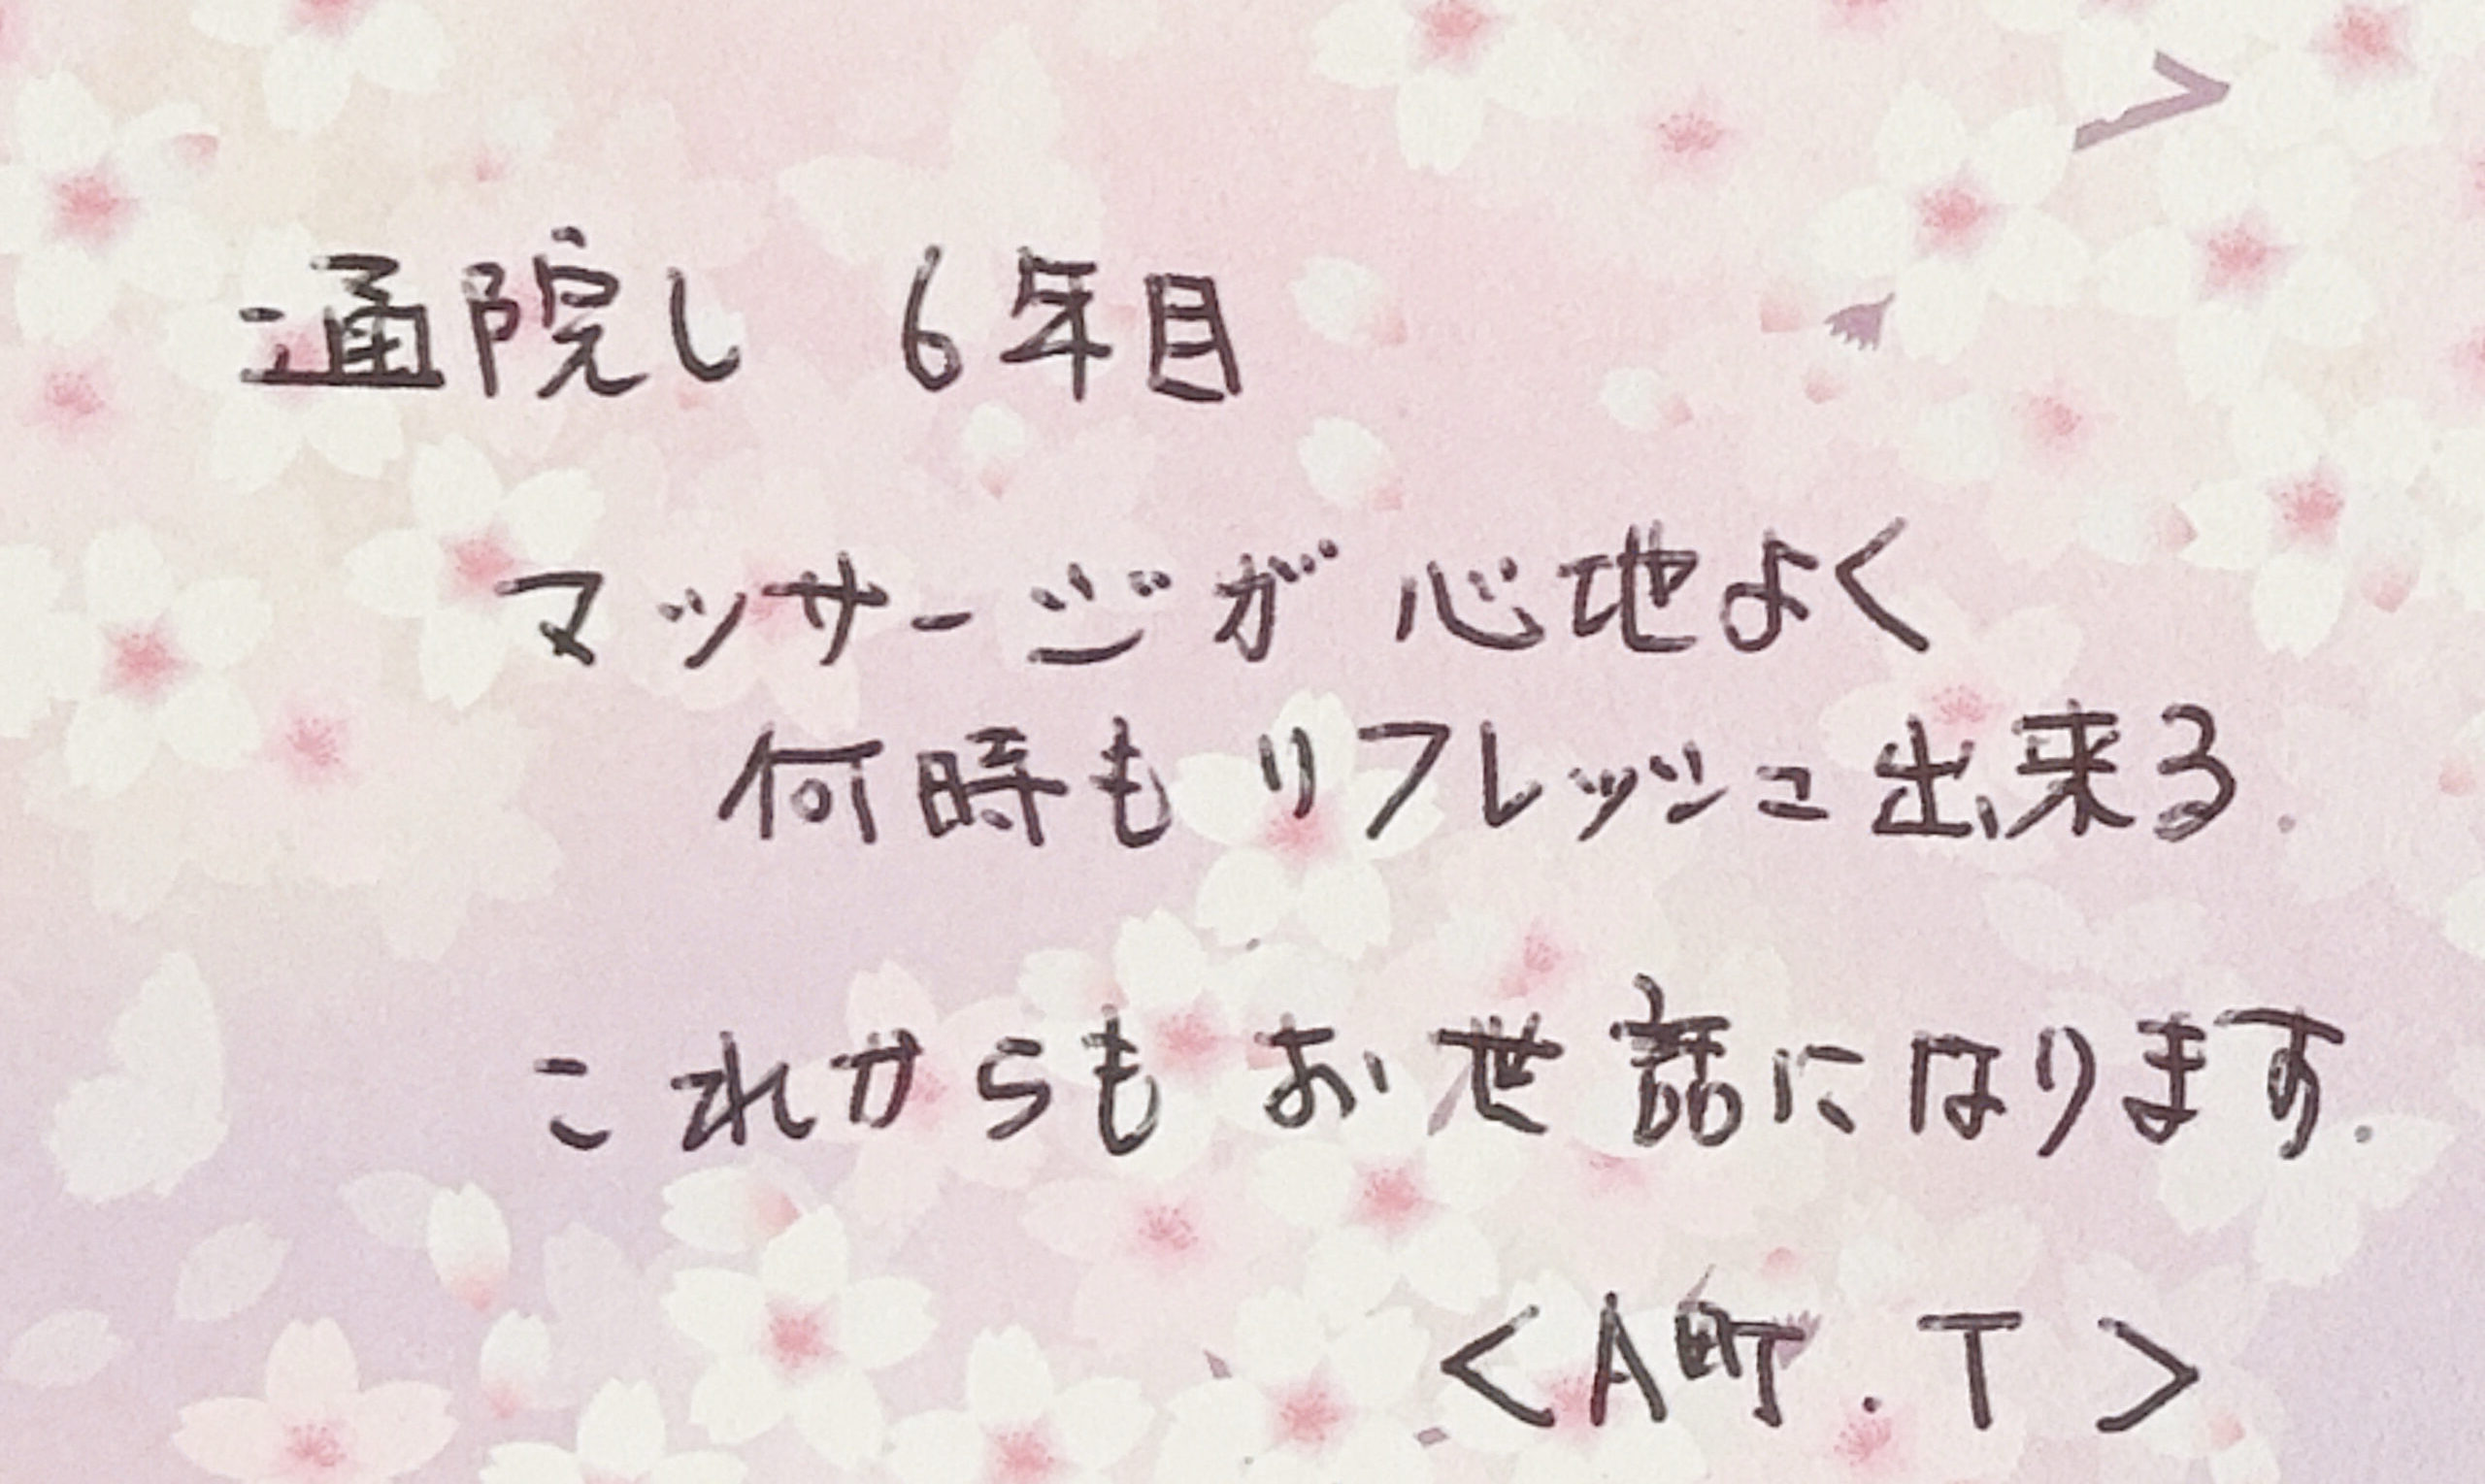 通院し 6年目
マッサージが 心地よく
何時も リフレッシュ出来る.
これからも お世話になります.
<A町.T>